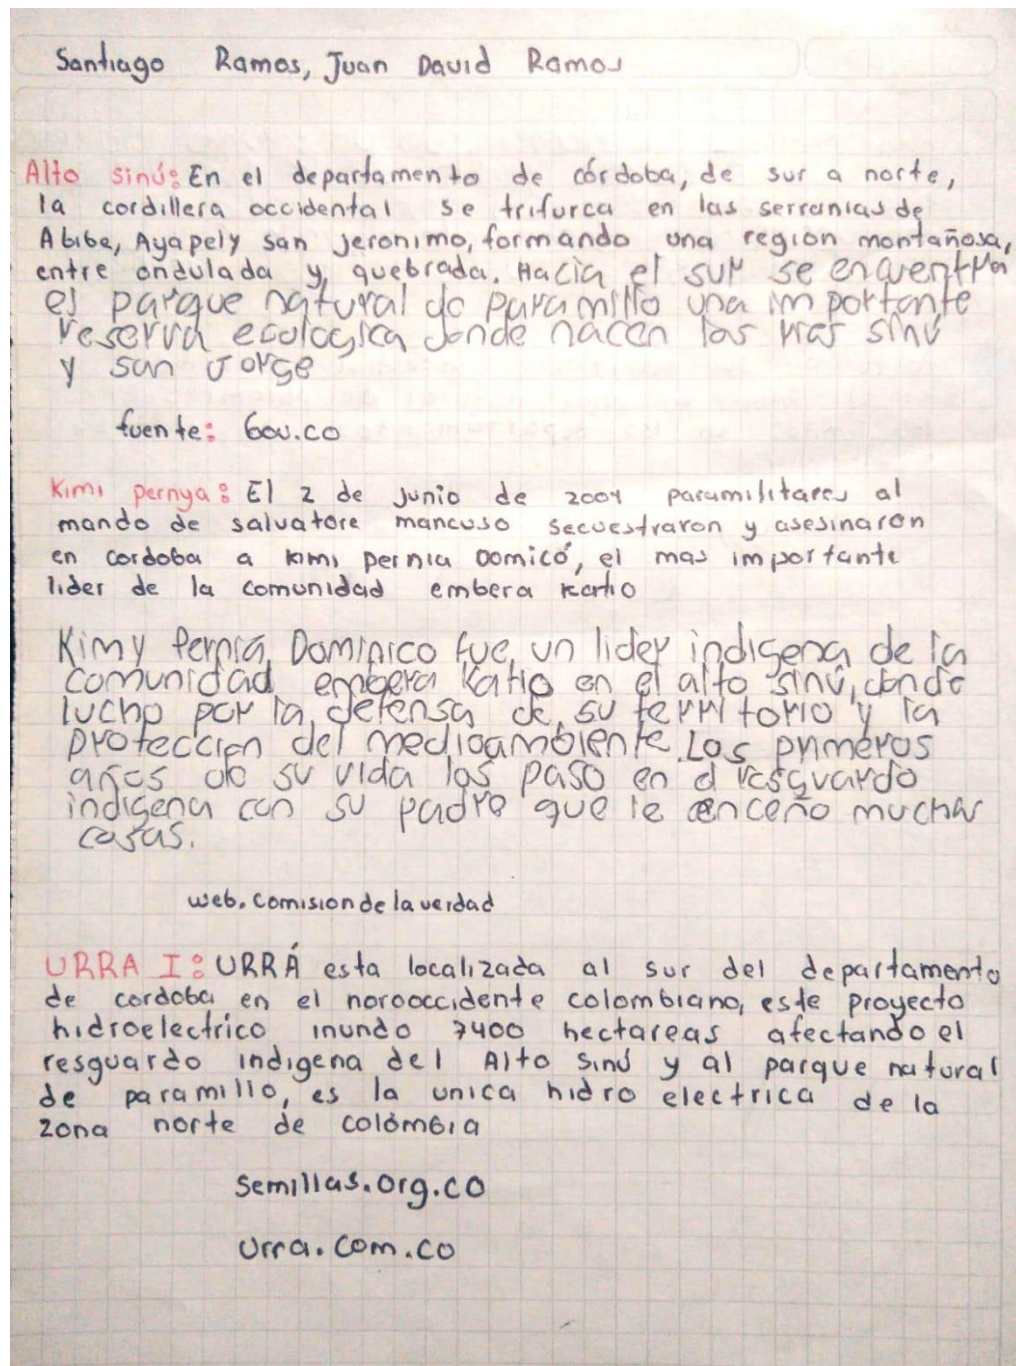 Santiago Ramos, Juan David Ramos
Alto sinú: En el departamento de córdoba, de sur a norte,
la cordillera occidental se trifurca en las serranias de
Abibe, Ayapely san jeronimo, formando una region montañosa,
entre ondulada y quebrada. Hacia el sur se encuentra
el parque natural do paramillo una importante
reserva ecologica donde nacen los rios sinú
y san Jorge
fuente: Gov.co
Kimi pernya: El 2 de junio de 2001 paramilitares al
mando de salvatore mancuso secuestraron y asesinaron
en cordoba a kimi pernia Domicó, el mas importante
lider de la comunidad embera katio
Kimy Pernia Dominico fue un lider indigena de la
comunidad embera Katio en el alto sinú, donde
lucho por la defensa de su territorio y la
protección del medioambiente. Los primeros
años de su vida los paso en el resguardo
indigena con su padre que le enceño muchas
cosas.
web. Comision de la verdad
URRA I: URRÁ esta localizada al sur del departamento
de cordoba en el norooccidente colombiano, este proyecto
hidroelectrico inundo 7400 hectareas afectando el
resguardo indigena del Alto Sinú y al parque natural
de paramillo, es la unica hidro electrica de la
zona norte de colómbia
Semillas.org.co
Urra.com.co